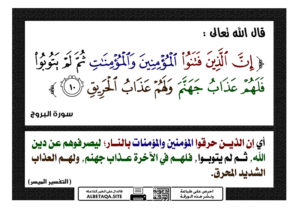 قال الله تعالى :
﴿ إِنَّ الَّذِينَ فَتَنُوا۟ الْمُؤْمِنِينَ وَالْمُؤْمِنَٰتِ ثُمَّ لَمْ يَتُوبُوا۟
فَلَهُمْ عَذَابُ جَهَنَّمَ وَلَهُمْ عَذَابُ الْحَرِيقِ ١٠ ﴾
سورة البروج
أي إن الذين حرقوا المؤمنين والمؤمنات بالنار؛ ليصرفوهم عن دين
الله، ثم لم يتوبوا، فلهم في الآخرة عذاب جهنم، ولهم العذاب
الشديد المحرق.
(التفسير الميسر)
احرص على طباعة
ونشر هذه الورقة
ALBETAQA.SITE